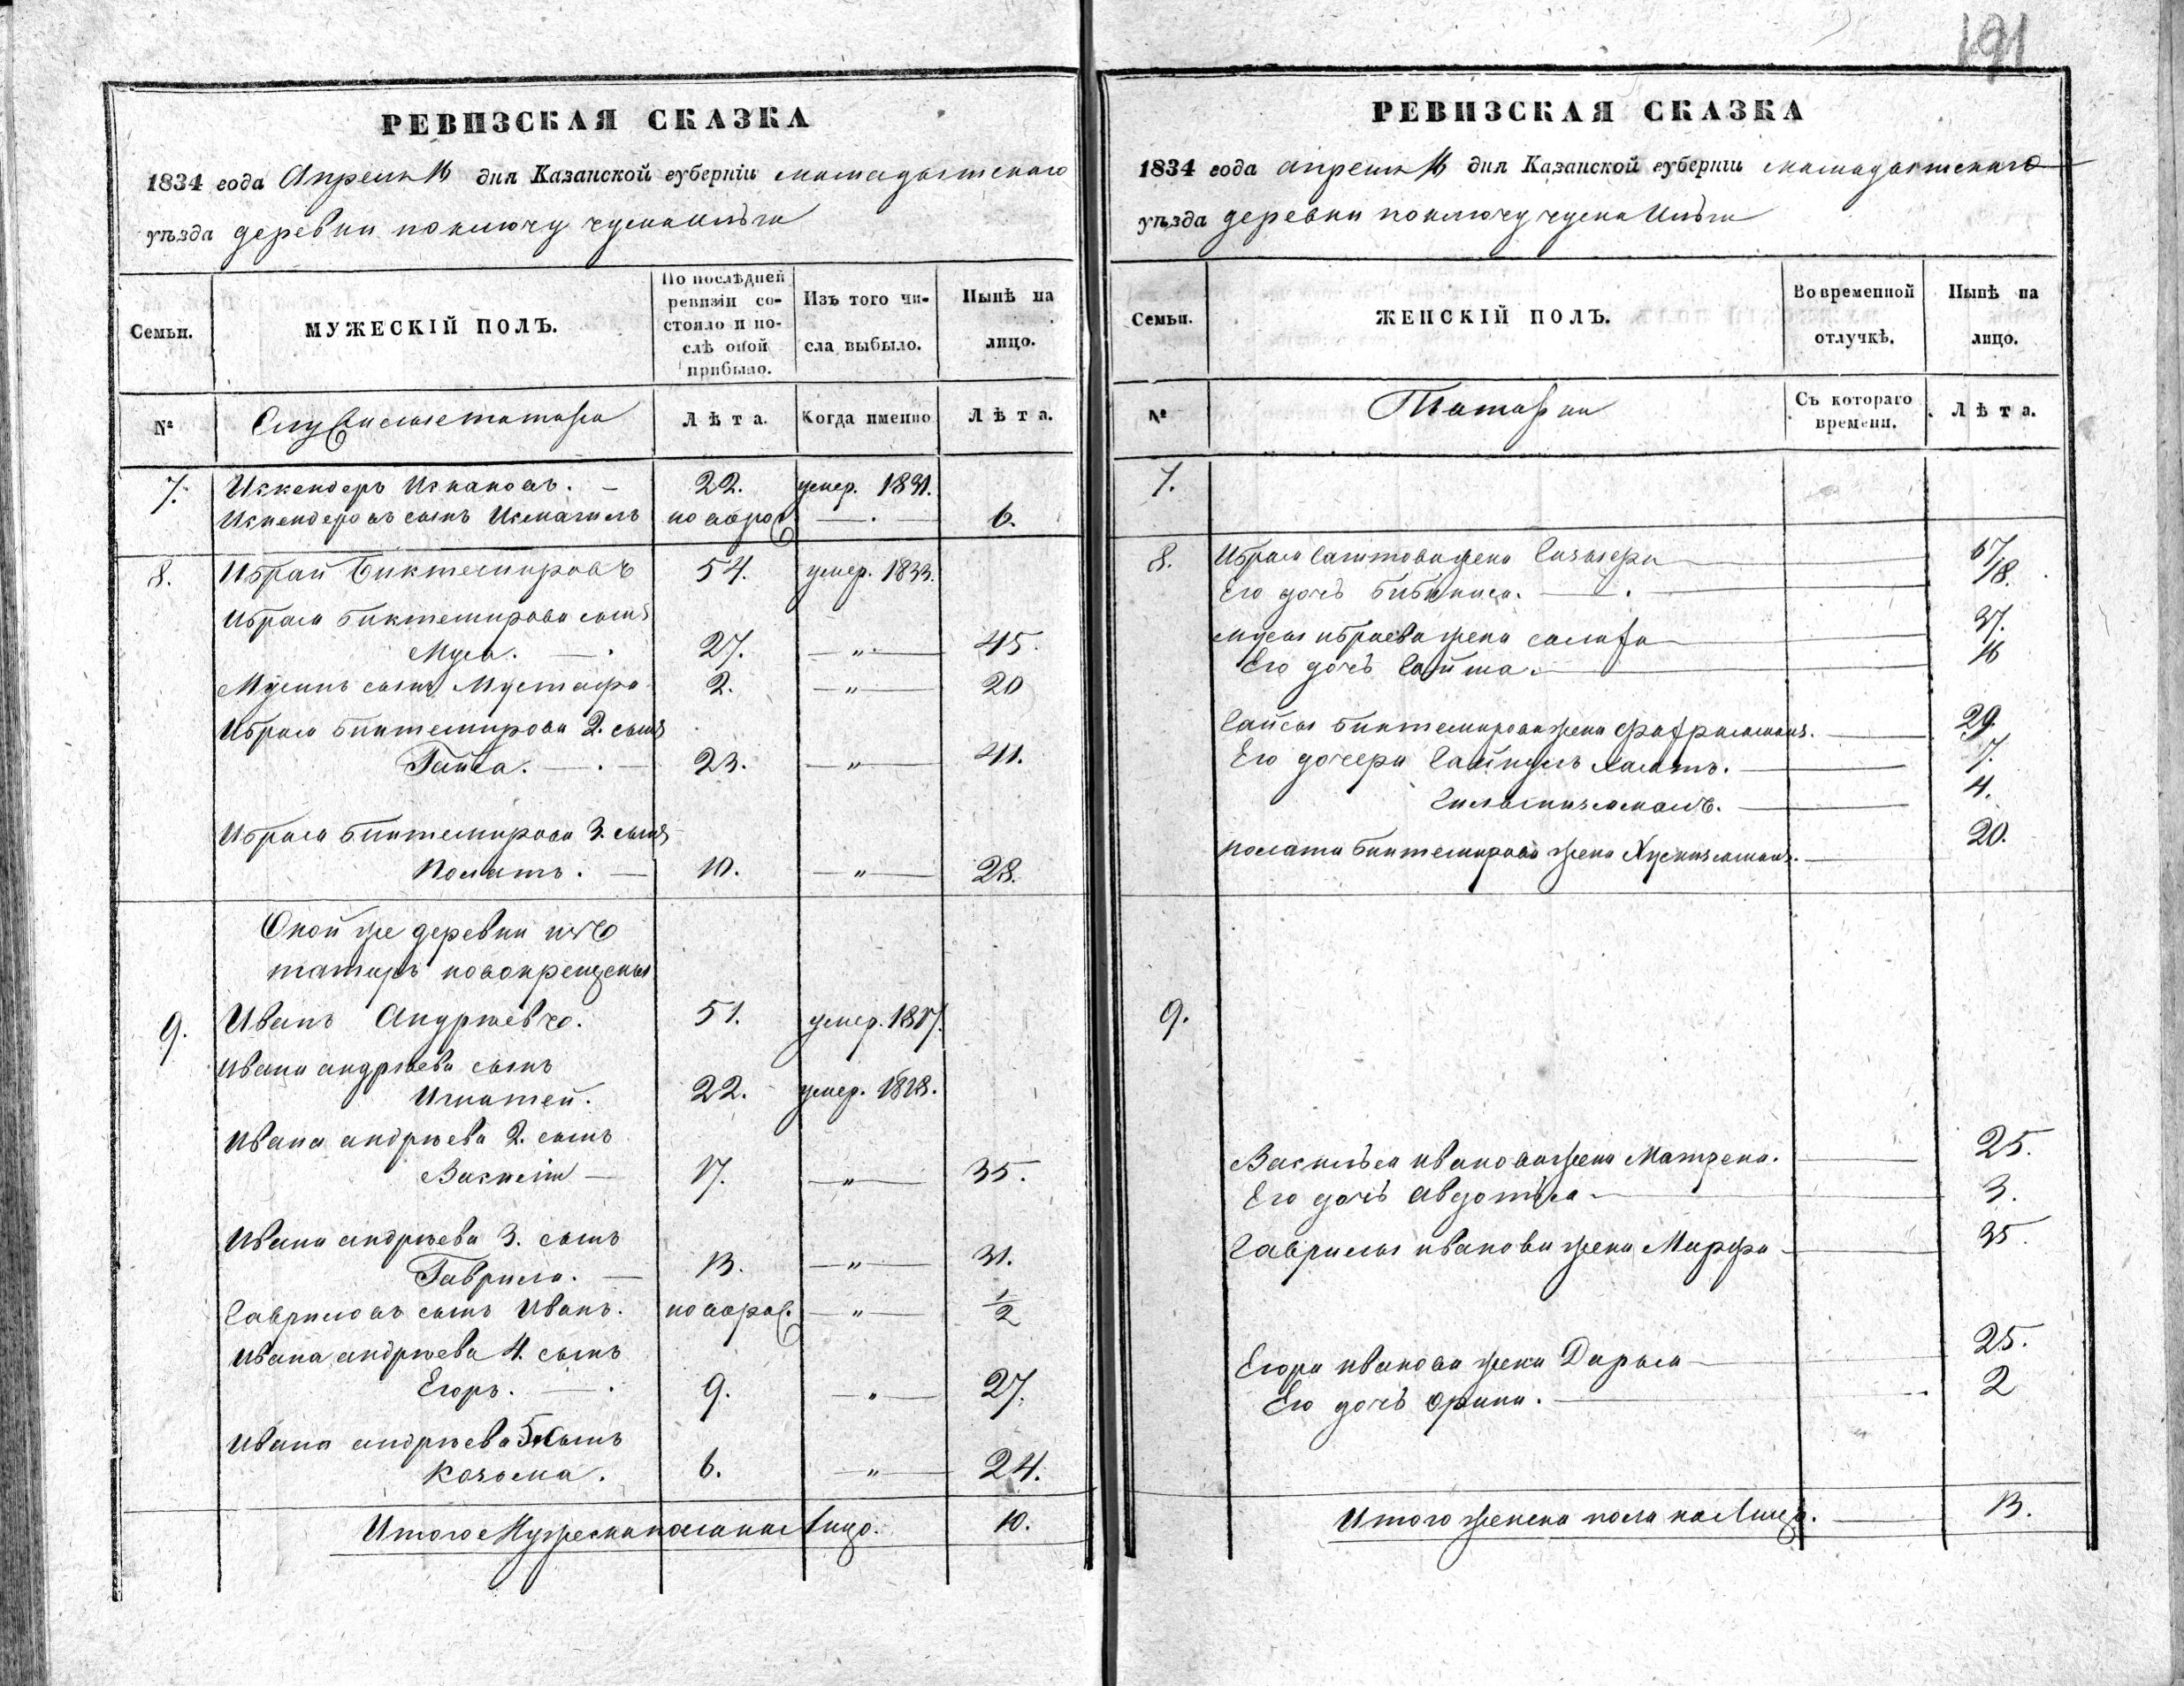 191
РЕВИЗСКАЯ СКАЗКА
1834 года Апреля 16 дня Казанской губерніи мамадышскаго
уѣзда деревни по ключу чумаилги
Семьи.
МУЖЕСКІЙ ПОЛЪ.
По послѣдней ревизіи состояло и послѣ оной прибыло.
Изъ того числа выбыло.
Нынѣ на лицо.
№
Служилые татара
Лѣта.
Когда именно
Лѣта.
7. Искендеръ Искаковъ. — 22. умер. 1831.
Искендеровъ сынъ Исмагилъ новорож — . — 6.
8. Ибрай Биктемировъ 54. умер. 1833.
Ибрая биктемирова сынъ
Муса. — . 27. — " — 45.
Мусинъ сынъ Мустафа 2. — " — 20
Ибрая биктемирова 2. сынъ
Гайса. — . — 23. — " — 41.
Ибрая биктемирова 3. сынъ
10. — " — 28.
Оной же деревни изъ
татаръ новокрещены
9. Иванъ Андрѣевъ. 51. умер. 1817.
Ивана андрѣева сынъ
Игнатей. 22. умер. 1818.
Ивана андрѣева 2. сынъ
Василій — 17. — " — 35.
Ивана андрѣева 3. сынъ
Гаврила. — 13. — " — 31.
Гавриловъ сынъ Иванъ. новорож. — " — 1/2
Ивана андрѣева 4. сынъ
Егоръ. — . 9. — " — 27.
Ивана андрѣева 5. сынъ
Козьма. 6. — " — 24.
Итого Мужеска пола на Лицо. 10.
РЕВИЗСКАЯ СКАЗКА
1834 года апреля 16 дня Казанской губерніи мамадышскаго
уѣзда деревни по ключу чумаилги
Семьи.
ЖЕНСКІЙ ПОЛЪ.
Во временной отлучкѣ.
Нынѣ на лицо.
№
Татарки
Съ котораго времени.
Лѣта.
7.
8. Ибрая жена 67
Его дочь бибиниса. — . — 18.
Мусы ибраева жена — 37.
Его дочь — 16
Гайсы биктемирова жена — 29.
Его дочери — 7.
— 4.
биктемирова жена — 20.
9.
Василья иванова жена Матрена. — 25.
Его дочь Авдотья — 3.
Гаврилы иванова жена Марфа — 35.
Егора иванова жена Дарья — 25.
Его дочь орина. — 2
Итого женска пола на Лицо. — 13.